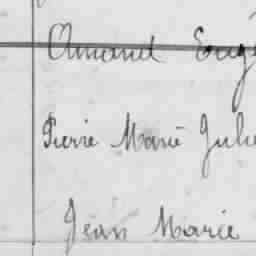 Amand Eug
Pierre Marie Julie
Jean Marie